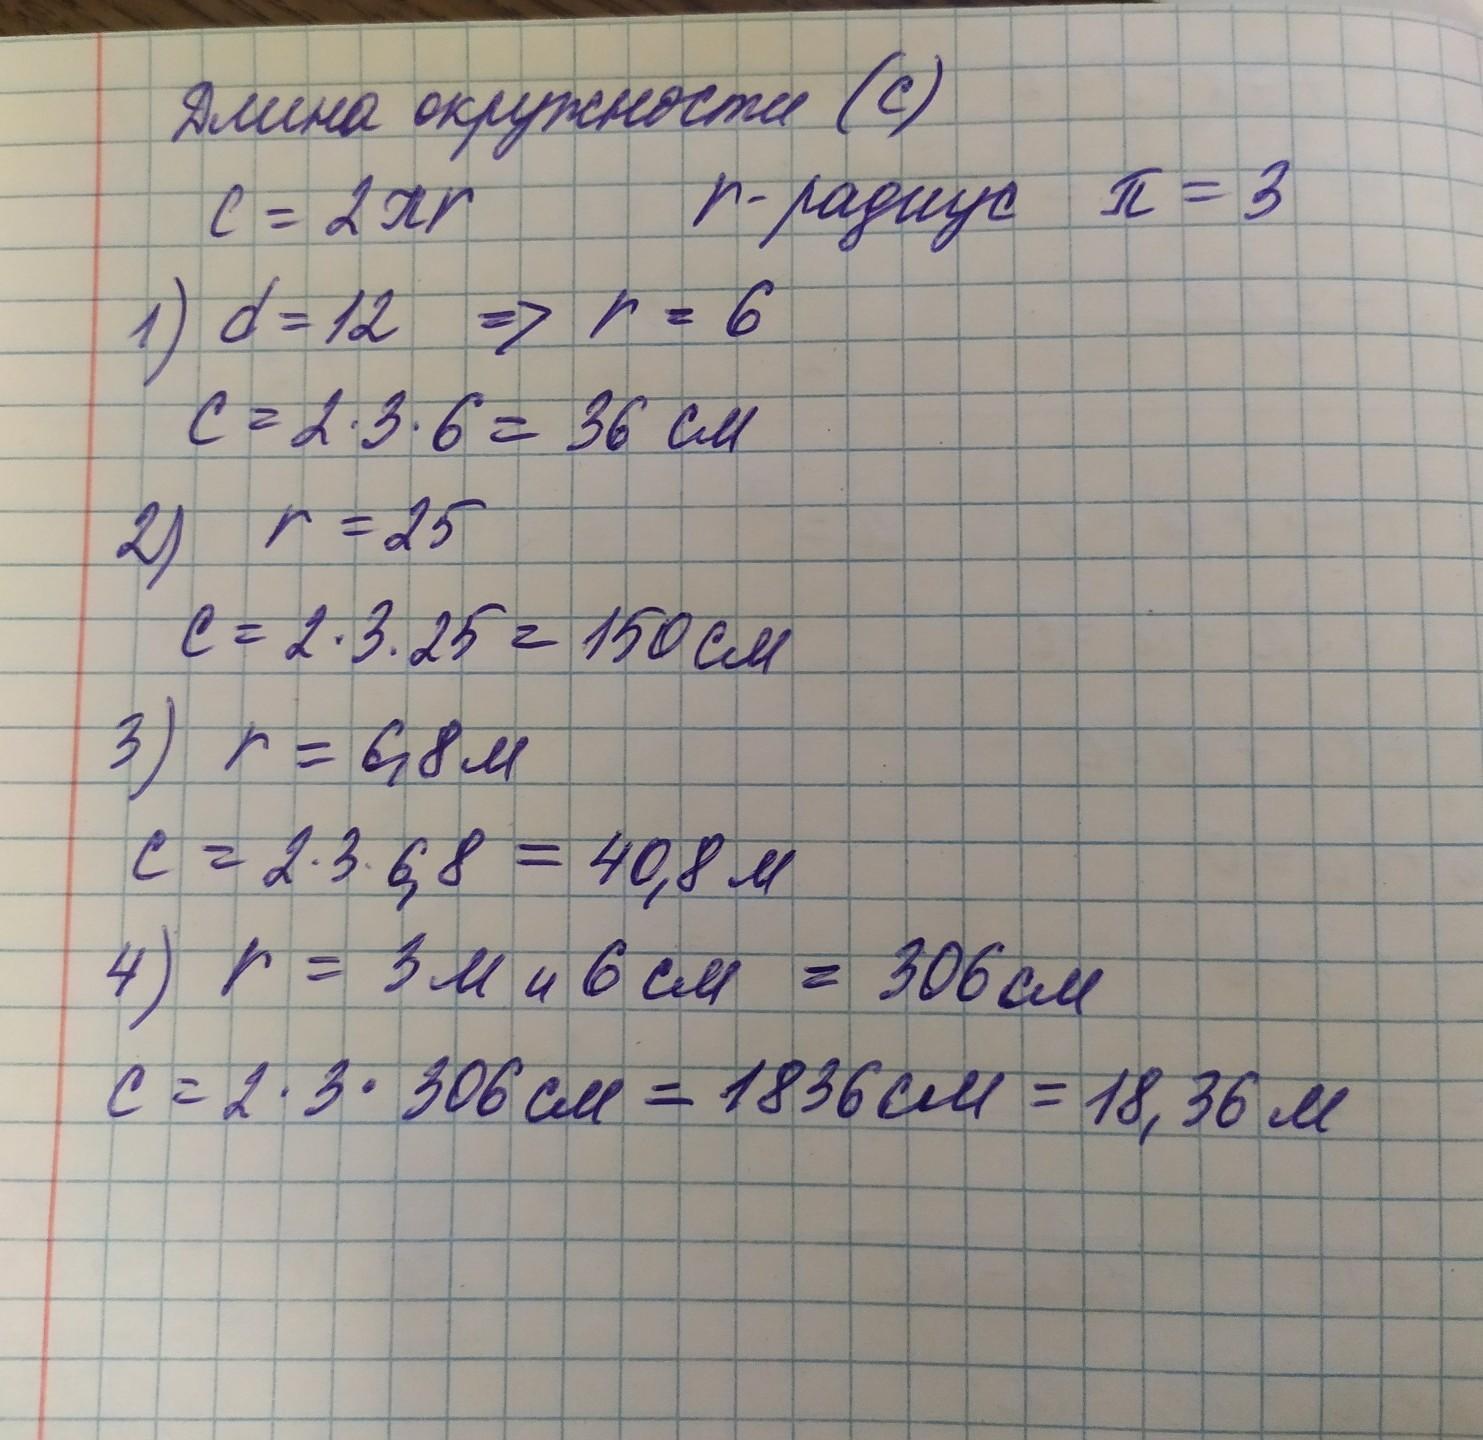 Длина окружности (с)
с = 2πr r - радиус π = 3
1) d = 12 => r = 6
с = 2·3·6 = 36 см
2) r = 25
с = 2·3·25 = 150 см
3) r = 6,8 м
с = 2·3·6,8 = 40,8 м
4) r = 3 м и 6 см = 306 см
с = 2·3·306 см = 1836 см = 18,36 м